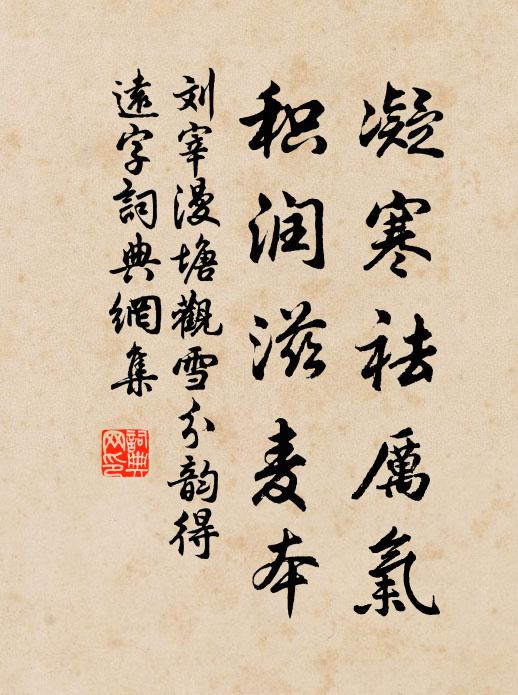 凝寒祛厲氣
积润滋麦本
刘宰漫塘觀雪分韵得
遠字詞典網集
詞典
网印